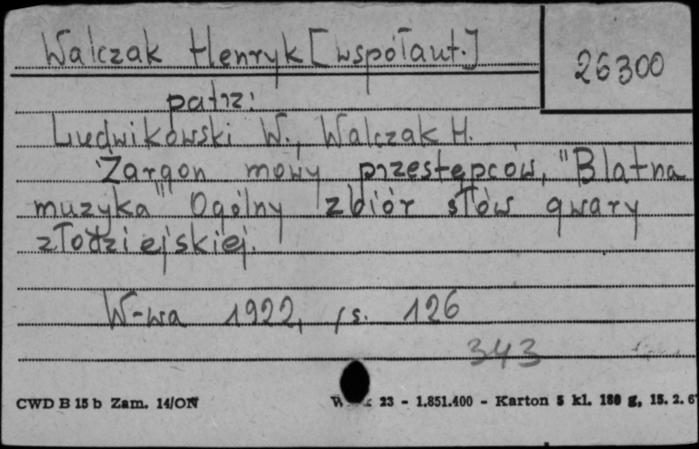 Walczak Henryk [współaut.]
26300
patrz:
Ludwikowski W., Walczak H.
Żargon mowy przestępców, "Blatna
muzyka" Ogólny zbiór słów gwary
złodziejskiej.
W-wa 1922, s. 126
343
CWD B 15 b Zam. 14/ON 23 - 1.851.400 - Karton 5 kl. 180 g, 15. 2. 6